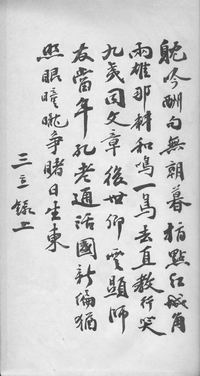 觥吟酬句無朝暮指點紅蠶角
兩雄那料和鳴一鳥去直教行哭
九義因文章後世仰雲顯師
友當年孔老通活國新偏猶
照眼曈曨爭睹日生東
三立錄上